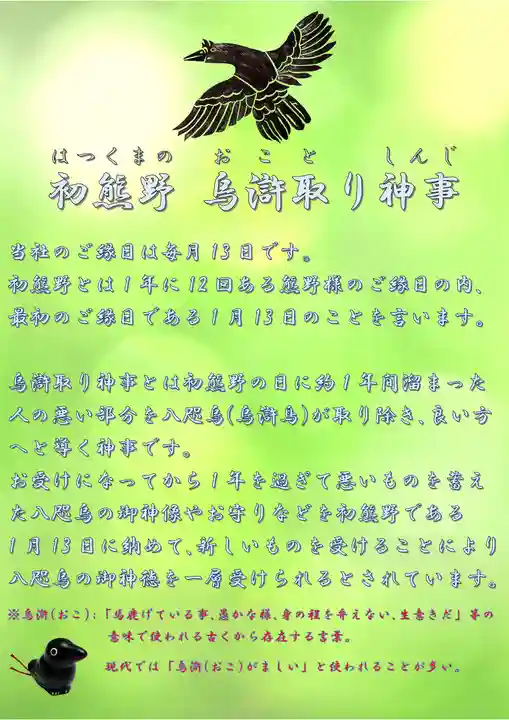 はつくまの おこと しんじ
初熊野 烏滸取り神事
当社のご縁日は毎月13日です。
初熊野とは1年に12回ある熊野様のご縁日の内、
最初のご縁日である1月13日のことを言います。
烏滸取り神事とは初熊野の日に約1年間溜まった
人の悪い部分を八咫烏(烏滸鳥)が取り除き、良い方
へと導く神事です。
お受けになってから1年を過ぎて悪いものを蓄え
た八咫烏の御神像やお守りなどを初熊野である
1月13日に納めて、新しいものを受けることにより
八咫烏の御神徳を一層受けられるとされています。
※烏滸(おこ):「馬鹿げている事、愚かな様、身の程を弁えない、生意きだ」等の
意味で使われる古くから存在する言葉。
現代では「烏滸(おこ)がましい」と使われることが多い。